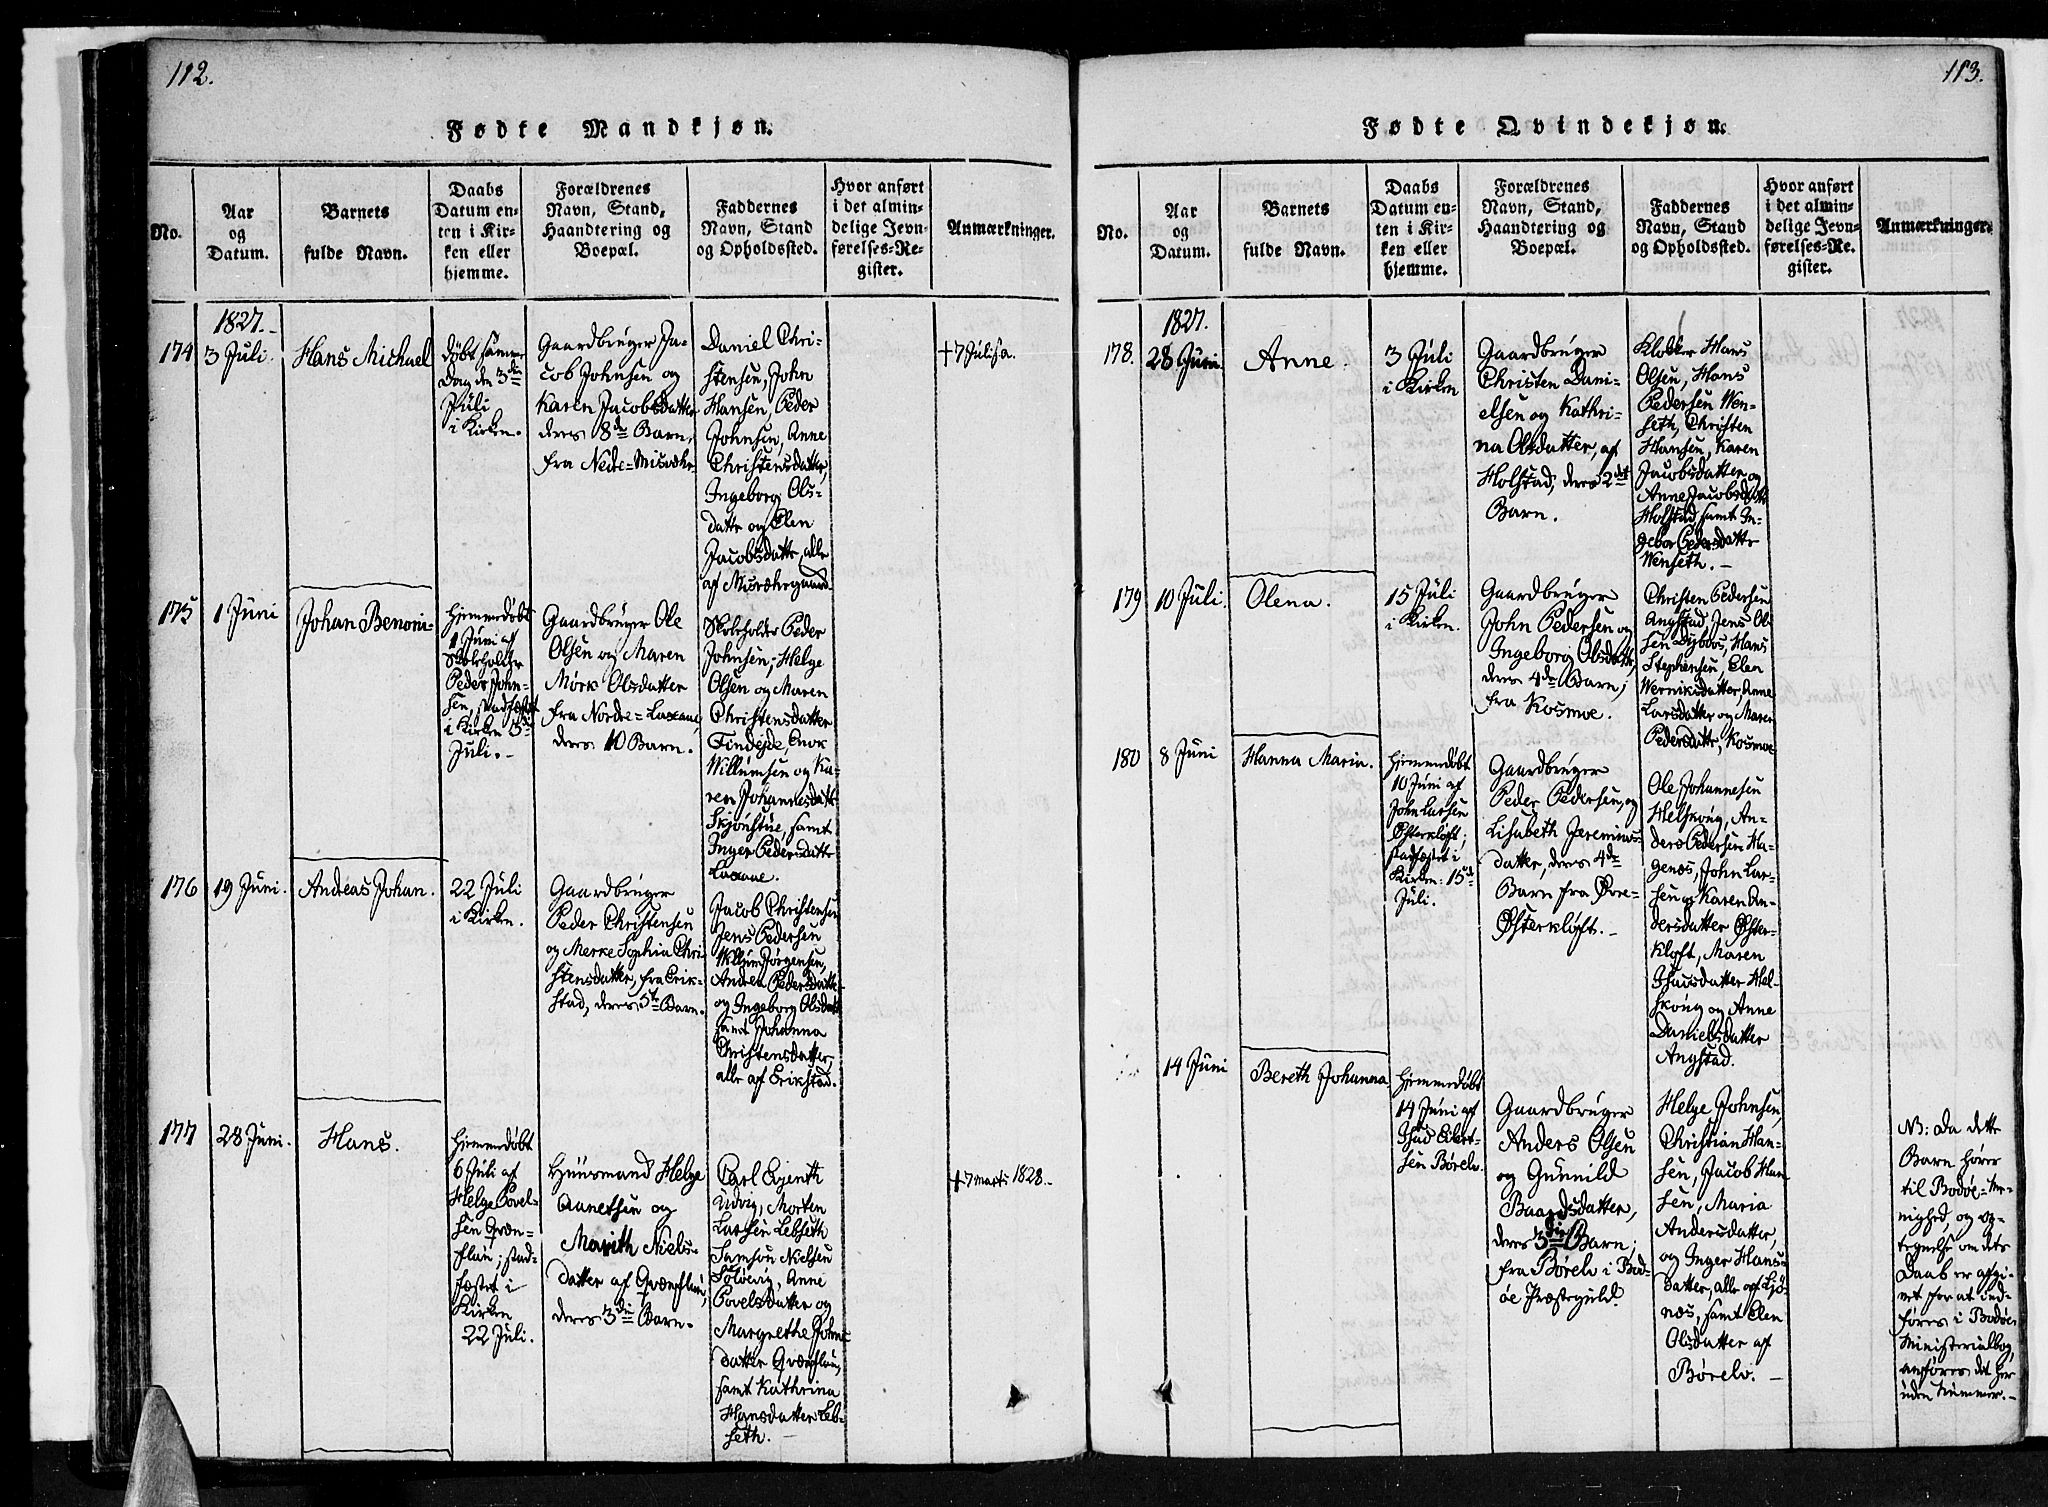 112.
Fødte Mandkjøn.
No.
Aar
og
Datum.
Barnets
fulde Navn.
Daabs
Datum en-
ten i Kir-
ken eller
hjemme.
Forældrenes
Navn, Stand,
Haandtering og
Boepæl.
Faddernes
Navn, Stand
og Opholdssted.
Hvor anført
i det almin-
delige Jevn-
førelses-Re-
gister.
Anmærkninger.
1827.
174
3 Juli.
Hans Michael
døbt samme
Dag den 3die
Juli
i Kirken.
Gaardbruger Ja-
cob Johnsen og
Karen Jacobsdatter
deres 8de Barn,
fra Nedre=Misvæhr
Daniel Chri-
stensen, John
Hansen, Peder
Johnsen, Anne
Christensdatter,
Ingeborg Ols-
datte og Elen
Jacobsdatte, alle
af Misvæhrgaard.
+ 7 Juli s.a.
175
1 Juni
Johan Benoni
Hjemmedøbt
1 Juni af
Skoleholder
Peder John-
sen, stadfæstet
i Kirken 15de
Juli.
Gaardbruger Ole
Olsen og Maren
Mørk Olsdatter
fra Nordre=Laxaae,
deres 10 Barn.
Skoleholder Peder
Johnsen, Helge
Olsen og Maren
Christensdatter
Findejde, Enok
Willumsen og Ka-
ren Johannesdatt
Skjønstue, samt
Inger Pedersdatte
Laxaae.
176
19 Juni.
Andreas Johan.
22 Juli
i Kirken.
Gaardbruger
Peder Christensen
og Merke Sophia Chri-
stensdatter, fra Erik-
stad, deres 5te Barn.
Jacob Christensen
Jens Pedersen
Willum Jørgensen,
Andrea Pedersdatte
og Ingeborg Olsdatt
samt Johanna
Christensdatter,
alle af Erikstad.
177
28 Juni.
Hans.
Hjemmedøbt
6 Juli af
Helge Povel-
sen Qvæn-
flau; stad-
fæstet i
Kirken
22 Juli.
Huusmand Helge
Aanetsen og
Marith Niels-
datter af Qvænflau,
deres 3die Barn.
Carl
Ludvig, Morten
Larsen Lebseth
Samson Nielsen
Solovig, Anne
Povelsdatter og
Margrethe Johns
datter Qvænflau,
samt Kathrina
Hansdatter Leb-
seth.
+ 7 marts 1828.
113.
Fødte Qvindekjøn.
No.
Aar
og
Datum.
Barnets
fulde Navn.
Daabs
Datum en-
ten i Kir-
ken eller
hjemme.
Forældrenes
Navn, Stand,
Haandtering og
Boepæl.
Faddernes
Navn, Stand
og Opholdssted.
Hvor anført
i det almin-
delige Jevn-
førelses-Re-
gister.
Anmærkninger.
1827.
178.
28 Juni.
Anne.
3 Juli
i Kirken
Gaardbruger
Christen Dani-
elsen og Kathri-
na Olsdatter, af
Holstad, deres 2det
Barn.
Klokker Hans
Olsen, Hans
Pedersen Wen-
seth, Christen
Hansen, Karen
Jacobsdatter og
Anne Jacobsdatt
Holstad, samt In-
gebor Pedersdatte
Wenseth.
179
10 Juli.
Olena.
15 Juli
i Kirken.
Gaardbruger
John Pedersen og
Ingeborg Olsdatt,
deres 4de Barn,
fra Kosmoe.
Christen Pedersen
Angstad, Jens Ol-
sen Lybøs, Hans
Stephensen, Elen
Werniksdatter, Anne
Larsdatter og Maren
Pedersdatte, Kosmoe
180
8 Juni
Hanna Maria.
Hjemmedøbt
10 Juni af
John Larsen
Østerkløft,
stadfæstet i
Kirken: 15de
Juli.
Gaardbruger
Peder Pedersen, og
Lisabeth Jeremias-
datter, deres 4de
Barn fra Øvre-
Østerkløft.
Ole Johannesen
Helskoug, An-
ders Pedersen Ha-
genæs, John Lar-
sen og Karen An-
dersdatter Øster-
kløft, Maren
Isaisdatter Hel-
skoug og Anne
Danielsdatter
Angstad.
14 Juni
Bereth Johanna
Hjemmedøbt
14 Juni af
Isac Eilert-
sen Børelv.
Gaardbruger
Anders Olsen
og Gunnild
Baardsdatter,
deres 3die Barn,
fra Børelv i Bod-
øe Præstegield.
Helge Johnsen,
Christian Han-
sen, Jacob Han-
sen, Maria
Andersdatter,
og Inger Hans-
datter, alle af Ljøs-
næs, samt Elen
Olsdatter af
Børelv.
NB: Da dette
Barn hører
til Bodøe=Me-
nighed, og op-
tegnelse om dets
Daab er afgi-
vet for at ind-
føres i Bodøe
Ministerialbog,
anføres det her
uden Nummer.